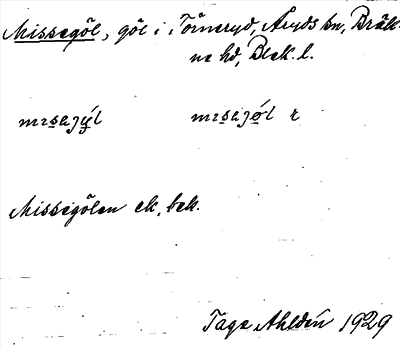 Missegöl, göl i Törneryd, Åryds sn, Bräk-
ne hd, Blek. l.
mɪsajý̱l mɪsajó̱l ε
Missegölen ek. bek.
Tage Ahldén 1929